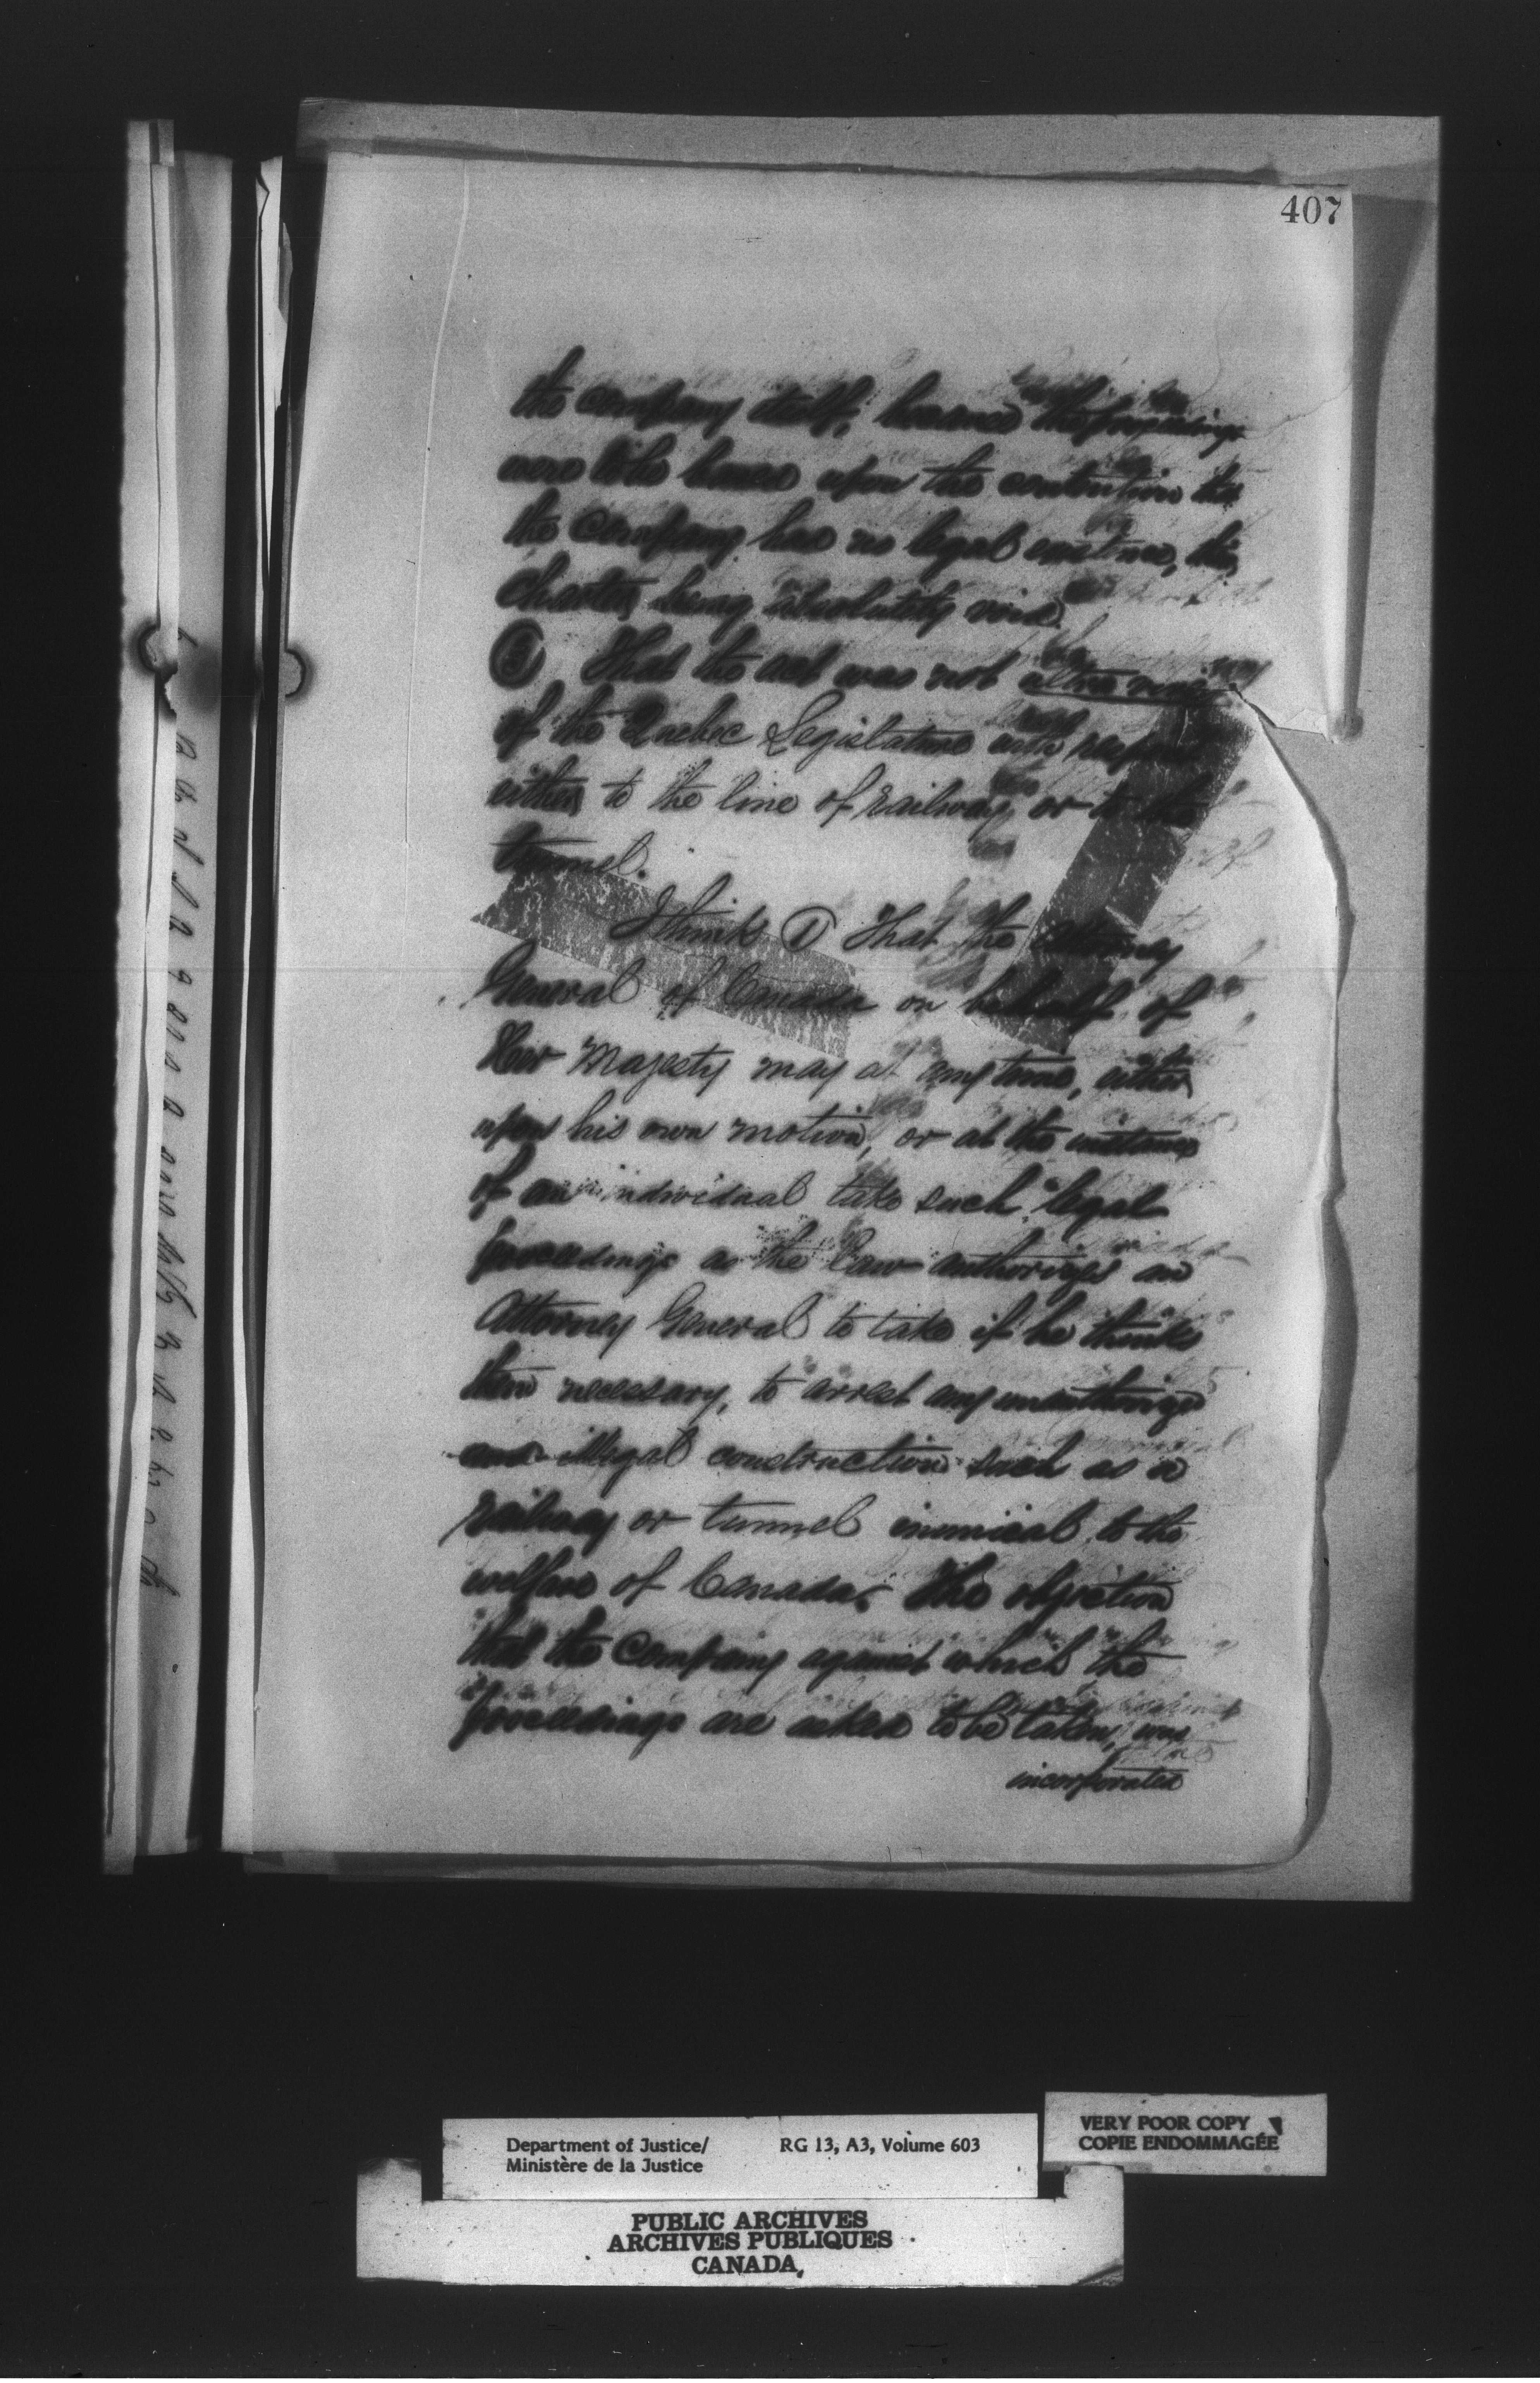 407
the company itself, because the proceedings
were to be based upon the contention that
the company has no legal existence, the
charter being absolutely void.
③ That the act was not ultra vires
of the Quebec Legislature with respect
either to the line of railway or to the
tunnel.
I think ① That the Attorney
General of Canada on behalf of
Her Majesty may at any time, either
upon his own motion, or at the instance
of an individual take such legal
proceedings as the law authorizes an
Attorney General to take if he thinks
them necessary, to arrest any unauthorized
and illegal construction such as a
railway or tunnel inimical to the
welfare of Canada. The objection
that the Company against which the
proceedings are asked to be taken, was
incorporated
Department of Justice/
Ministère de la Justice
RG 13, A3, Volume 603
VERY POOR COPY
COPIE ENDOMMAGÉE
PUBLIC ARCHIVES
ARCHIVES PUBLIQUES
CANADA